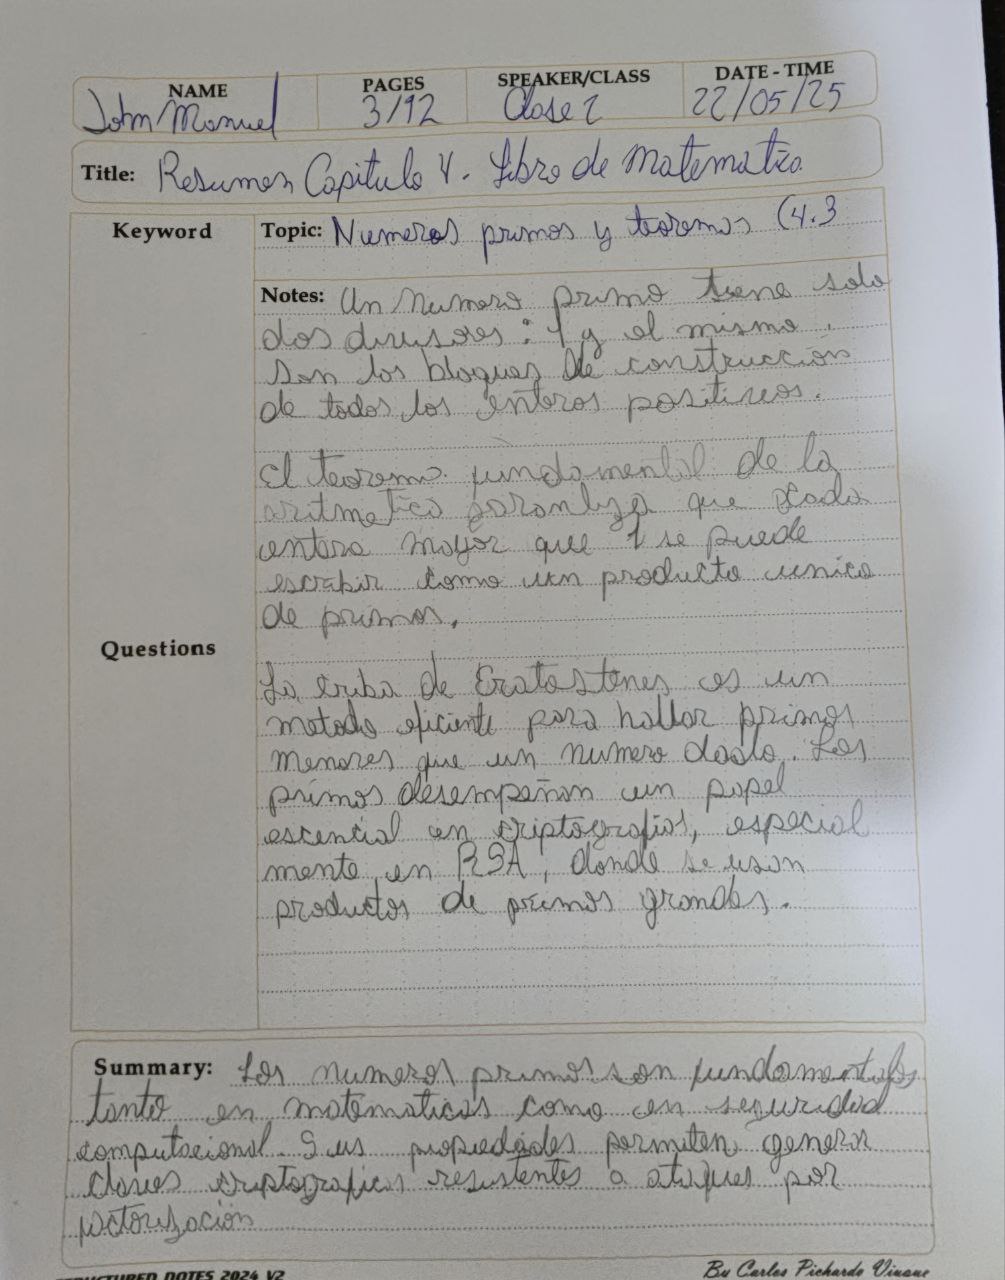 NAME PAGES SPEAKER/CLASS DATE - TIME
John Manuel 3/12 Clase 2 22/05/25
Title: Resumen Capitulo 4. Libro de Matematica
Keyword
Topic: Numeros primos y teoremas (4.3
Notes: Un numero primo tiene solo
dos divisores: 1 y el mismo.
Son los bloques de construcción
de todos los enteros positivos.
El teorema fundamental de la
aritmetica garantiza que cada
entero mayor que 1 se puede
escribir como un producto unico
de primos.
Questions
La criba de Eratostenes es un
metodo eficiente para hallar primos
menores que un numero dado. Los
primos desempeñan un papel
escencial en criptografias, especial
mente en RSA, donde se usan
productos de primos grandes.
Summary: Los numeros primos son fundamentales
tanto en matematicas como en seguridad
computacional. Sus propiedades permiten generar
claves criptograficas resistentes a ataques por
factorización
STRUCTURED NOTES 2024 V2
By Carlos Pichardo Viuque